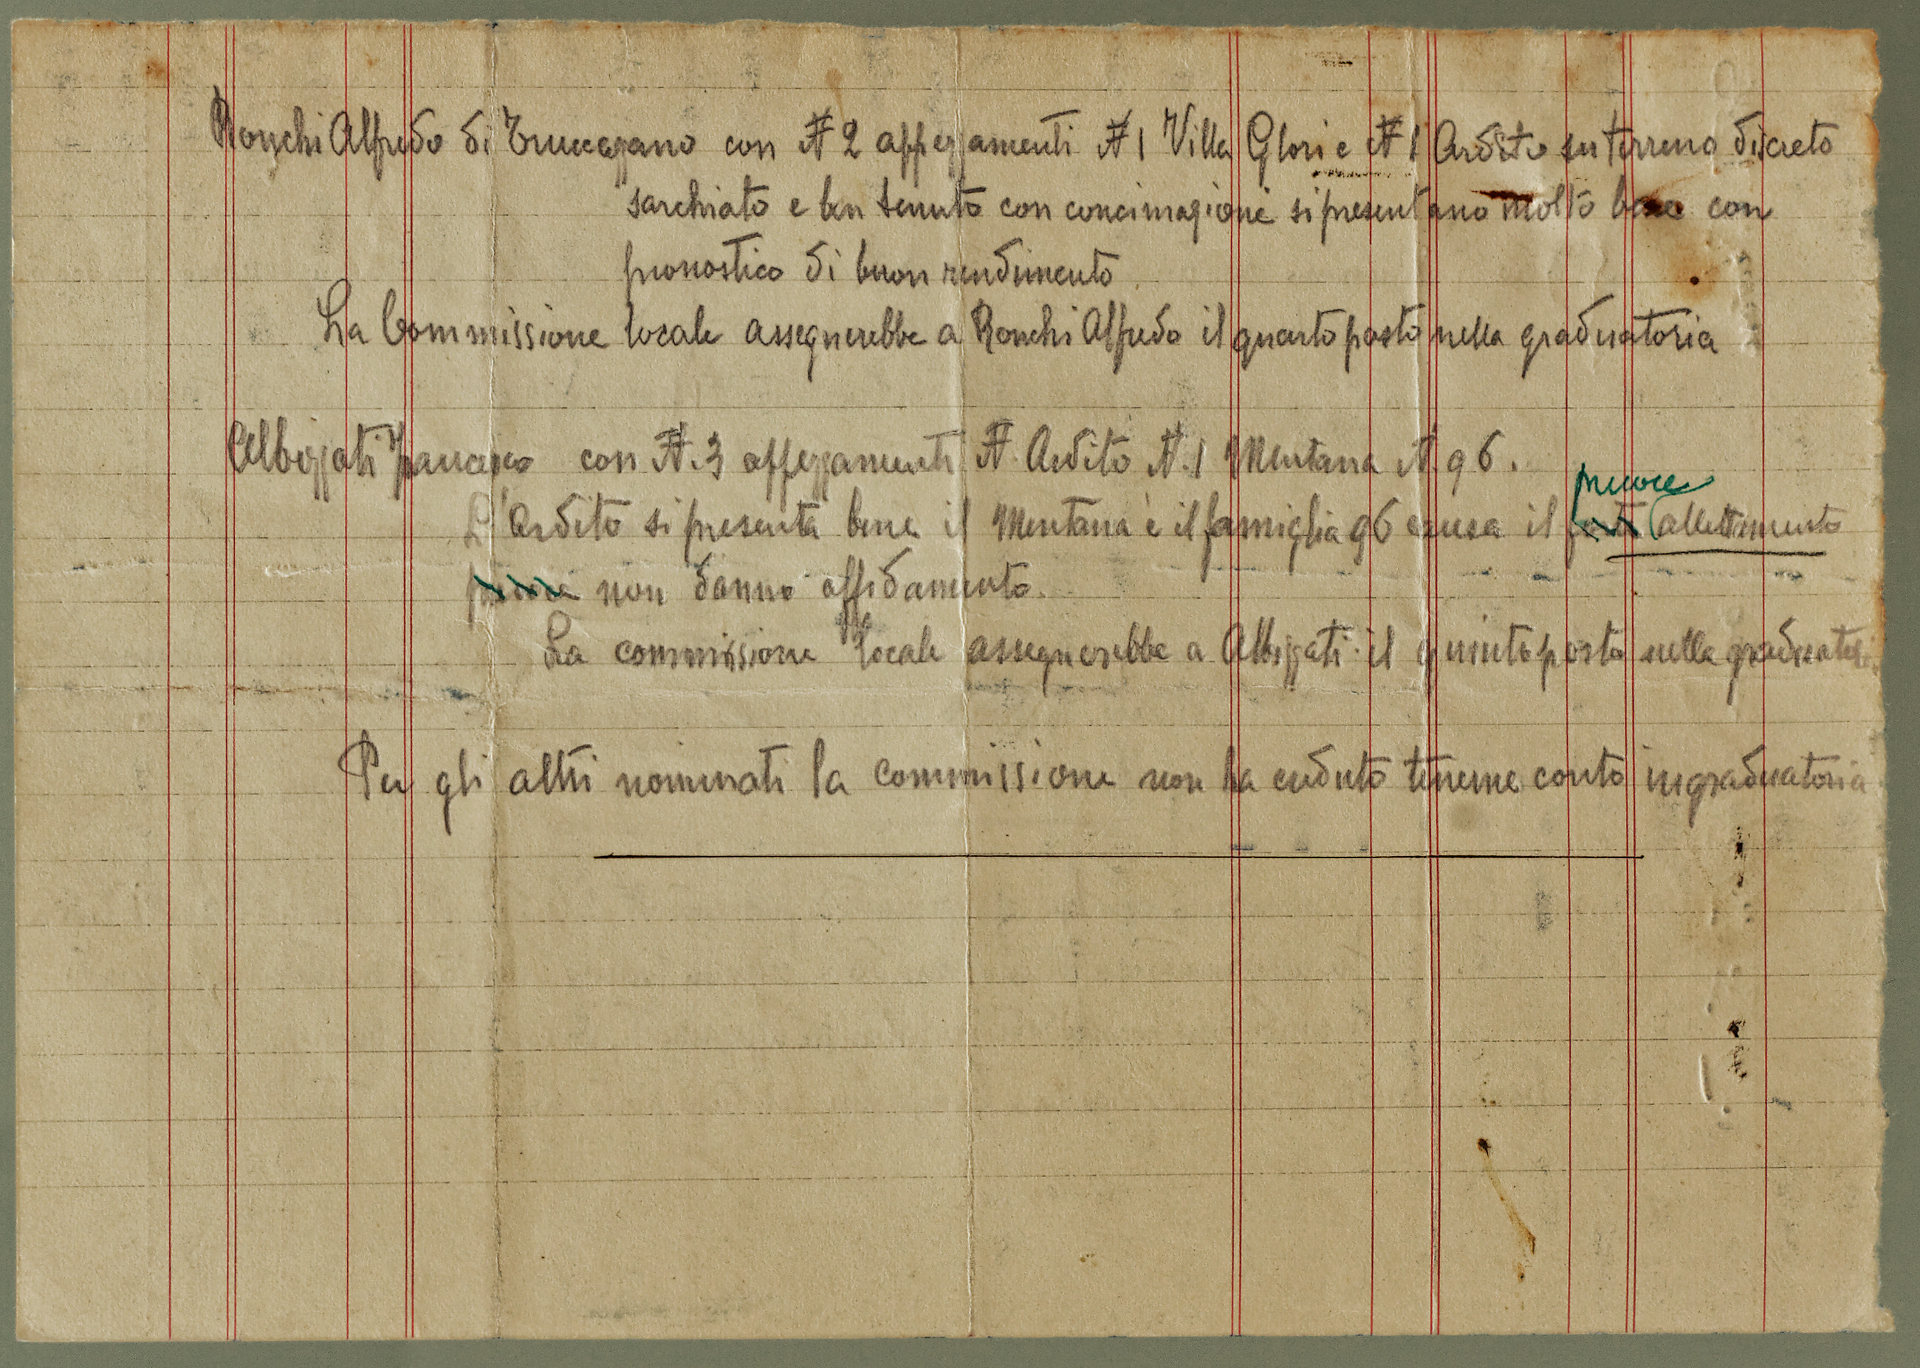 Ronchi Alfredo di Truccazzano con N 2 appezzamenti N 1 Villa Glori e N 1 Ardito su terreno dicreto
sarchiato e ben tenuto con concimazione si presentano molto bene con
pronostico di buon rendimento
La Commissione locale assegnerebbe a Ronchi Alfredo il quarto posto nella graduatoria
Albizzati Francesco con N. 3 appezzamenti N. Ardito N. 1 Mentana N. 96.
precoce
L'Ardito si presenta bene il Mentana è il famiglia 96 causa il forte allettimento
non danno affidamento.
La commissione locale assegnerebbe a Albizzati il quinto posto nella graduatoria
Per gli altri nominati la commissione non ha creduto tenerne conto in graduatoria